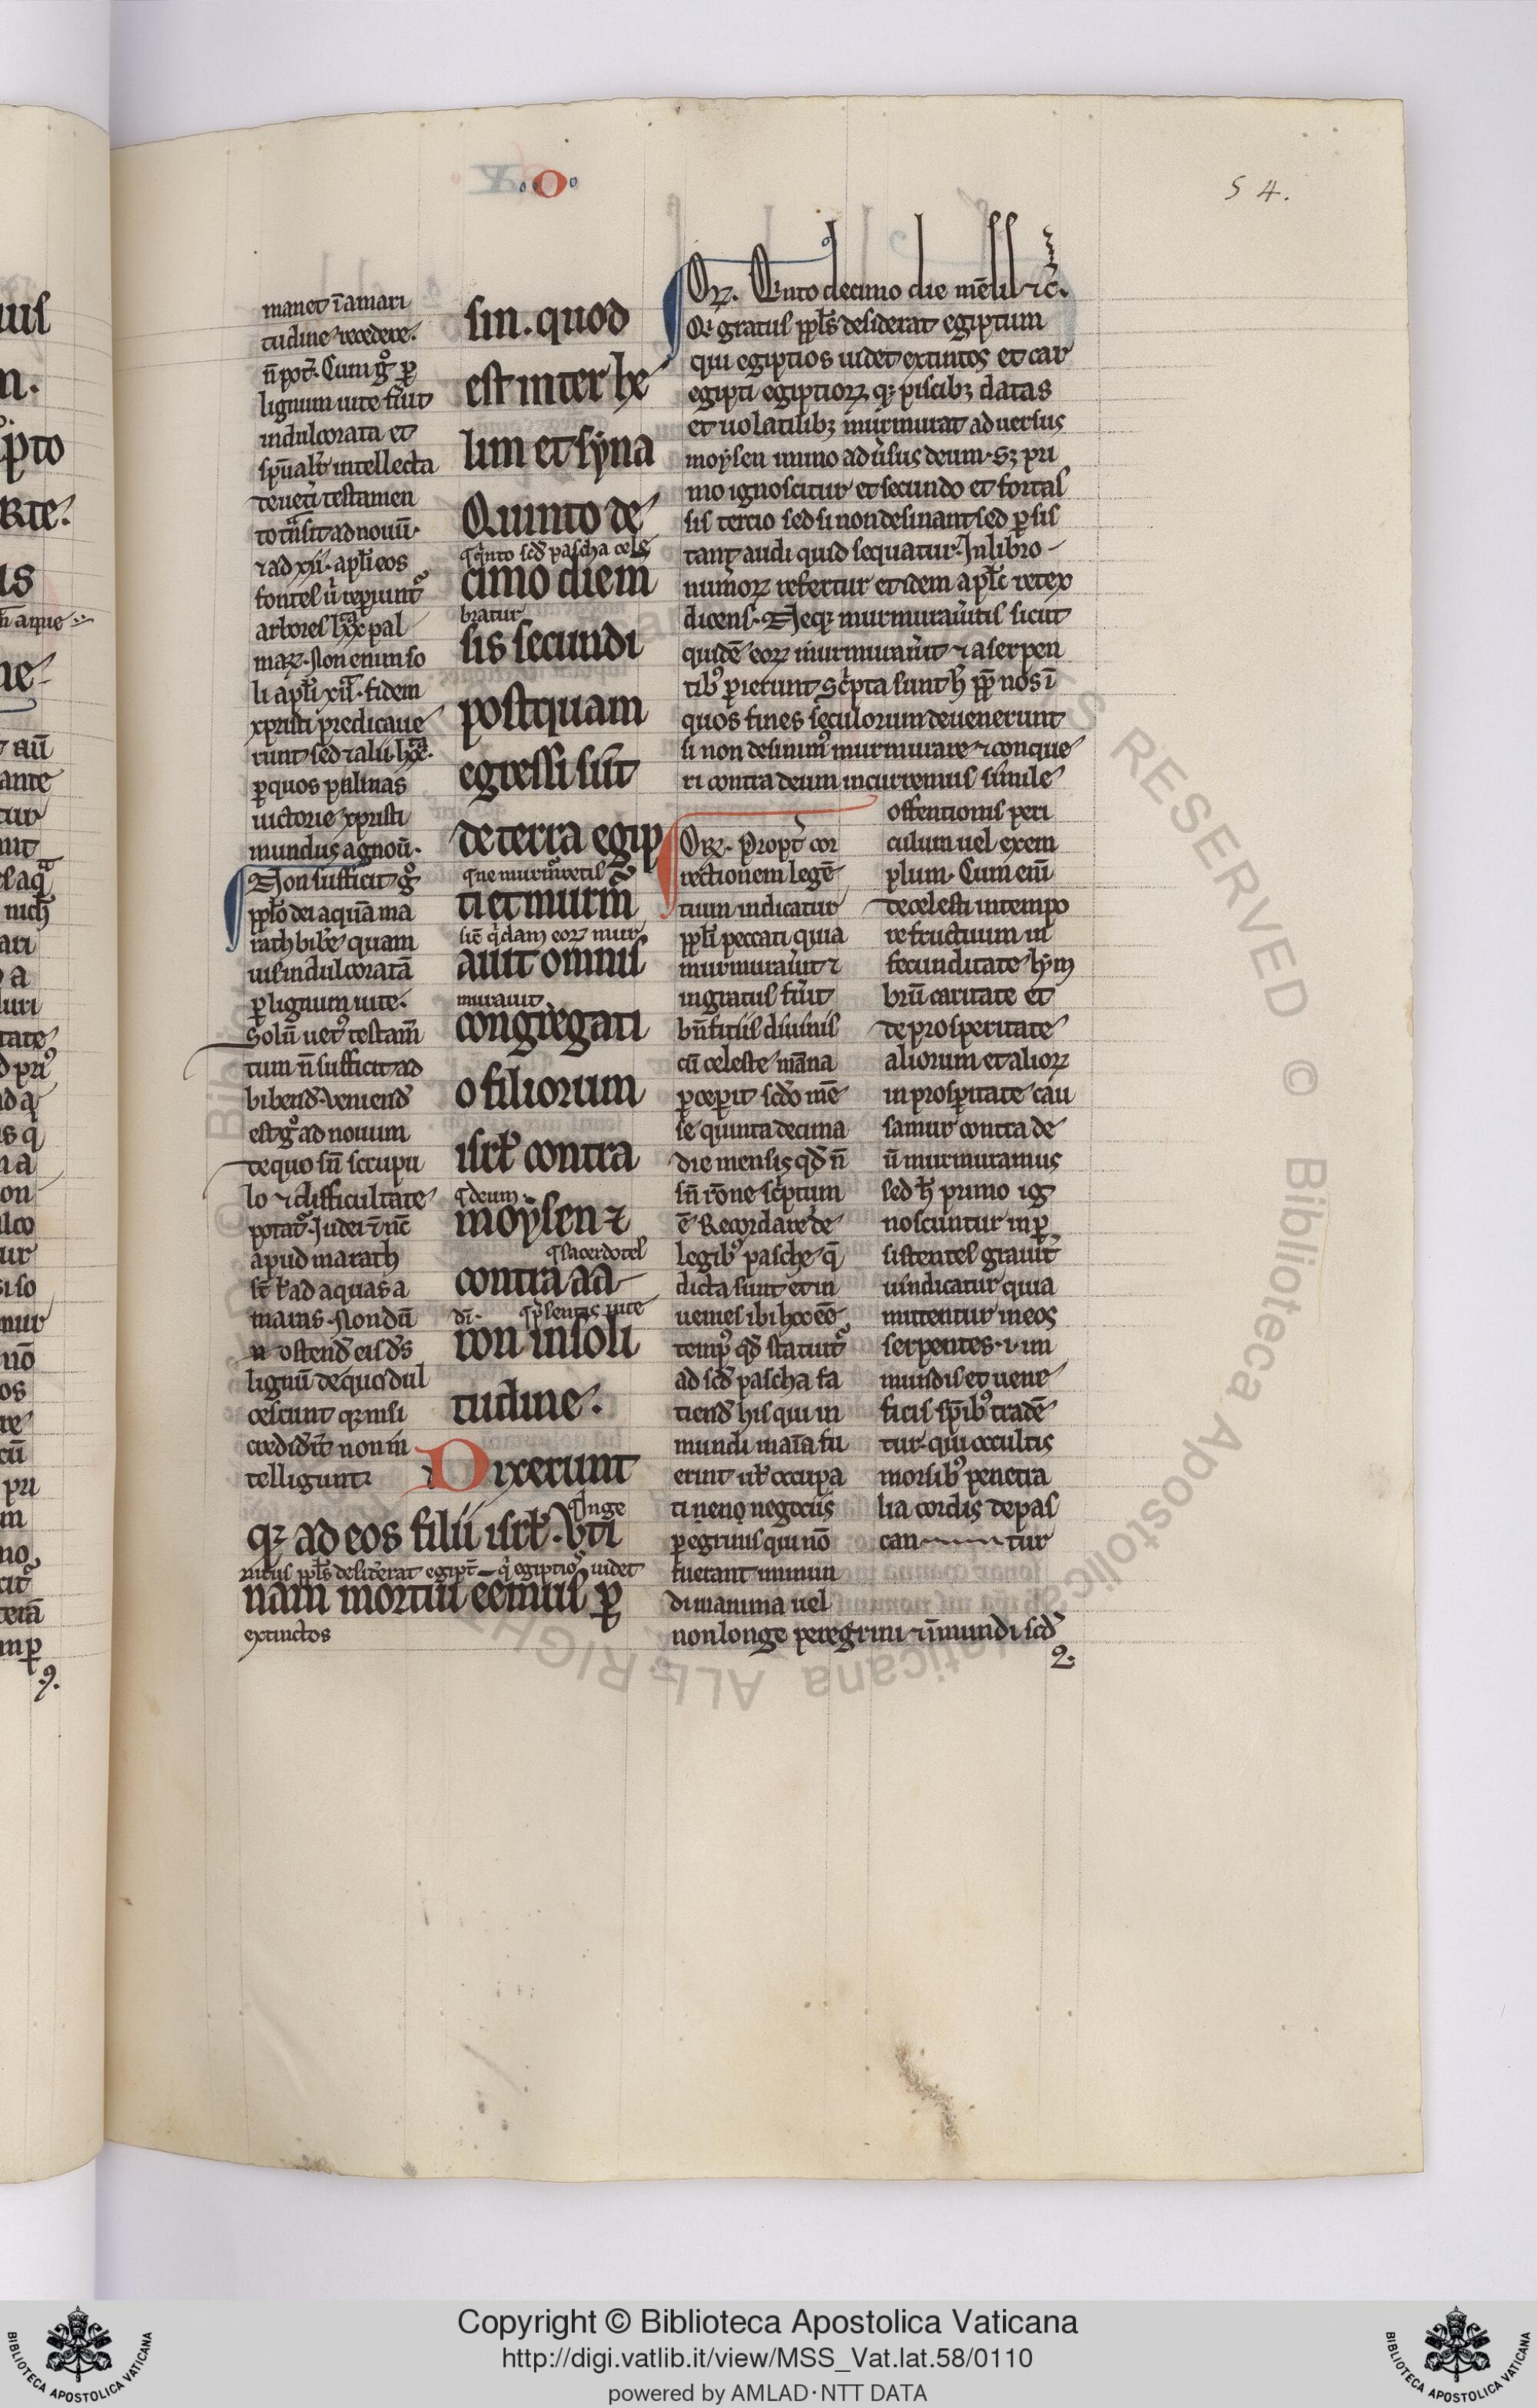 .o.
54.
manet ĩ amari
tudine recedere.
lignum uite fũit
indulcorata et
sp̃ualr̃ intellecta
to tñsit ad nouũ.
⁊ ad xii. apl̃icos
arbores lxx pal
maꝝ. Non enim so
li apl̃i xii. fidem
xpristi predicaue
runt sed ⁊ alii. lxx.
ꝑ quos palmas
uictorie xpristi
mundus agnoũ.
Non sufficit gͦ
pp̃lo dei aquã ma
rath bibe quam
uis indulcoratã
ꝑ lignum uite.
Solũ uetꝰ testam̃
tum ñ sufficit ad
bibend̃. Veniend̃
est gͦ ad nouum
de quo sñ scrupu
lo ⁊ difficultate
apud marath
mnaras. Nondũ
ostend̃ eis ds̃
lignũ de quo dul
cescunt qꝫ nisi
credid̃it non in
telligunt.
sin. quod
est inter he
lim et sẏna
Quinto de
cimo die m̃
bratur
sis secundi
postquam
egressi sũt
de terra egip
ti et murm̃
sic̃ q̃dam eoꝝ mur
auit omnis
murauit
congregati
o filiorum
isrł contra
¶ deum.
moẏsen ⁊
¶ sacerdotes
contra aa
ron in soli
tudine.
Dixerunt
qꝫ ad eos filii isrł. Vti
nam mortui eẽmus ꝑ
extinctos
Oꝝ. Qinto decimo die mẽsis ⁊c̃.
gratus ppl̃s desiderat egiptum
qui egiptios uidet extintos et car
egipti egiptioꝝ qꝫ piscibꝫ datas
et uolatilibꝫ murmurat aduersus
moẏsen immo adũsus deum. Sꝫ pri
mo ignoscitur et secundo et fortas
sis tercio sed si non desinant sed ꝑsis
tant audi quid sequatur. In libro
num̃oꝝ refertur et idem apl̃c retex
dicens. Neqꝫ murmurau̾itis sicut
quidẽ eoꝝ murmurau̾it ⁊ a serpen
tibꝰ ꝑierunt Sc̾pta sunt h̃ pp̃ nos ĩ
quos fines seculorum deuenerunt
si non desinimꝰ murmurare ⁊ conque
ri contra deum incurremus simile
Oꝝ. Propt̃ cor
rectionem legẽ
tium indicatur
pp̃li peccati quia
murmurau̾it ⁊
ingratus fũit
bñficiis diuinis
cũ celeste mãna
ꝑceperit scd̃o mẽ
se quinta decima
die mensis qd̃ ñ
sñ rõne sc̾ptum
ẽ Recordare de
legibꝰ pasche q̃
dicta sunt et in
uenies ibi hoc eẽ
tempꝰ qd̃ statuit̾
ad scd̃ pascha fa
ciend̃ his qui in
mundi in aĩa fu
erint ul̃ occupa
ti negociis
ꝑegrinis qui nõ
fuerant inmun
di in anima uel
non longe peregrini ⁊ ĩmundi scd̃
offentionis peri
culum uel exem
plum. Cum enĩ
de celesti intempo
re fructuum in
fecunditate hẏm
briũ caritate et
de prosperitate
aliorum et alioꝝ
in prosꝑitate cau
samur contra de
ũ murmuramus
sed h̃ primo ig
noscuntur in ꝑ
sistentes grauit̾
uindicatur quia
mittentur in eos
serpentes .i. im
mundis et uene
ficis sp̃ibꝰ tradẽ
tur. qui occultis
morsibꝰ penetra
lia cordis depas
can tur
2.
Copyright © Biblioteca Apostolica Vaticana
http://digi.vatlib.it/view/MSS_Vat.lat.58/0110
powered by AMLAD·NTT DATA
BIBLIOTECA APOSTOLICA VATICANA
BIBLIOTECA APOSTOLICA VATICANA